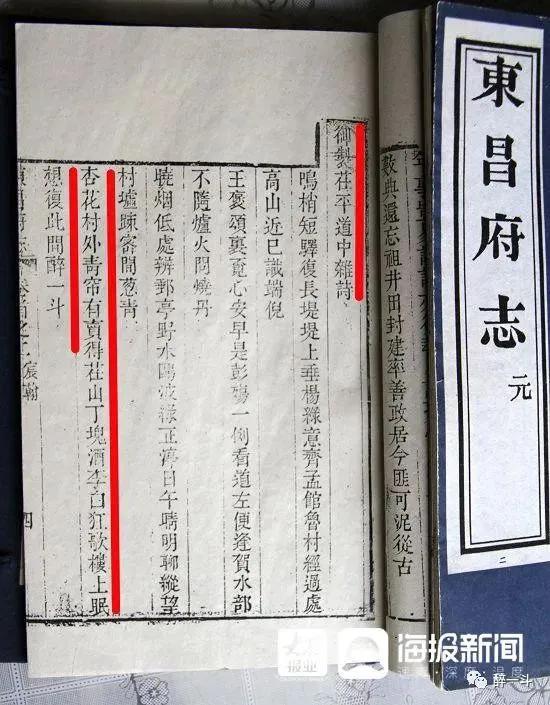 東昌府志
元
二
數典還忘祖井田封建率善政居今匪可泥從古
御製茌平道中雜詩
鳴梢短驛復長堤堤上垂楊綠意齊孟館魯村經過處
高山近巳識端倪
王褒頌裏覓心安早是彭殤一例看道左便逢賀水部
不隨爐火問燒丹
曉烟低處辨郵亭野水鷗波綠正渟日午晴明聊縱望
村墟疎密間葱青
杏花村外青帘有賣得茌山丁塊酒李白狂歌樓上眠
想復此間醉一斗
宸翰
四
报业
海报新闻
深度·温度
醉一斗